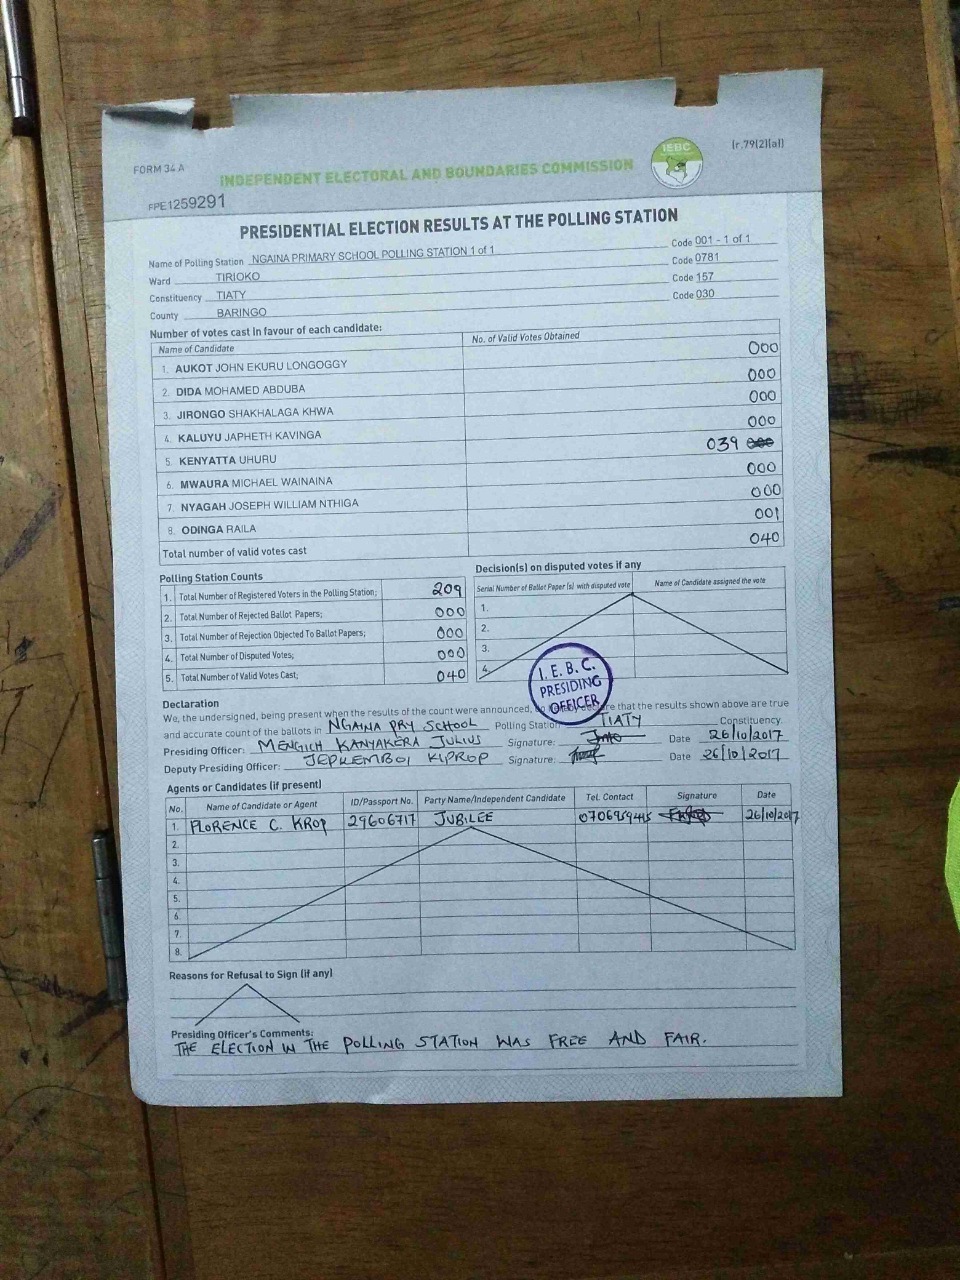 FORM 34 A
INDEPENDENT ELECTORAL AND BOUNDARIES COMMISSION
IEBC
(r.79(2)(a))
FPE1259291
PRESIDENTIAL ELECTION RESULTS AT THE POLLING STATION
Name of Polling Station NGAINA PRIMARY SCHOOL POLLING STATION 1 of 1 Code 001 - 1 of 1
Ward TIRIOKO Code 0781
Constituency TIATY Code 157
County BARINGO Code 030
Number of votes cast in favour of each candidate:
Name of Candidate No. of Valid Votes Obtained
1. AUKOT JOHN EKURU LONGOGGY 000
2. DIDA MOHAMED ABDUBA 000
3. JIRONGO SHAKHALAGA KHWA 000
4. KALUYU JAPHETH KAVINGA 000
5. KENYATTA UHURU 039
6. MWAURA MICHAEL WAINAINA 000
7. NYAGAH JOSEPH WILLIAM NTHIGA 000
8. ODINGA RAILA 001
Total number of valid votes cast 040
Polling Station Counts
1. Total Number of Registered Voters in the Polling Station; 209
2. Total Number of Rejected Ballot Papers; 000
3. Total Number of Rejection Objected To Ballot Papers; 000
4. Total Number of Disputed Votes; 000
5. Total Number of Valid Votes Cast; 040
Decision(s) on disputed votes if any
Serial Number of Ballot Paper (s) with disputed vote Name of Candidate assigned the vote
1.
2.
3.
4.
I.E.B.C.
PRESIDING
OFFICER
Declaration
We, the undersigned, being present when the results of the count were announced, do declare that the results shown above are true
and accurate count of the ballots in NGAINA PRY SCHOOL Polling Station TIATY Constituency.
Presiding Officer: MENGICH KANYAKERA JULIUS Signature: Date 26/10/2017
Deputy Presiding Officer: JEPKEMBOI KIPROP Signature: Date 26/10/2017
Agents or Candidates (if present)
No. Name of Candidate or Agent ID/Passport No. Party Name/Independent Candidate Tel. Contact Signature Date
1. FLORENCE C. KROP 29606717 JUBILEE 26/10/2017
2.
3.
4.
5.
6.
7.
8.
Reasons for Refusal to Sign (if any)
Presiding Officer's Comments:
THE ELECTION IN THE POLLING STATION WAS FREE AND FAIR.